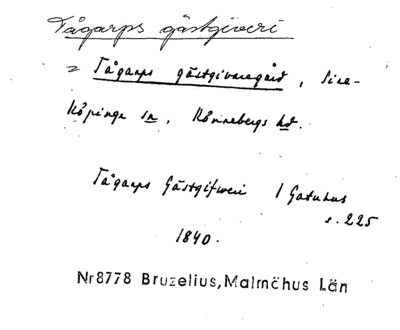 Tågarps gästgiveri
= Tågarps gästgivaregård, Sire-
Köpinge sn, Rönnebergs hd.
Tågarps Gästgifweri 1 Gatuhus
s. 225
1840.
Nr8778 Bruzelius, Malmöhus Län